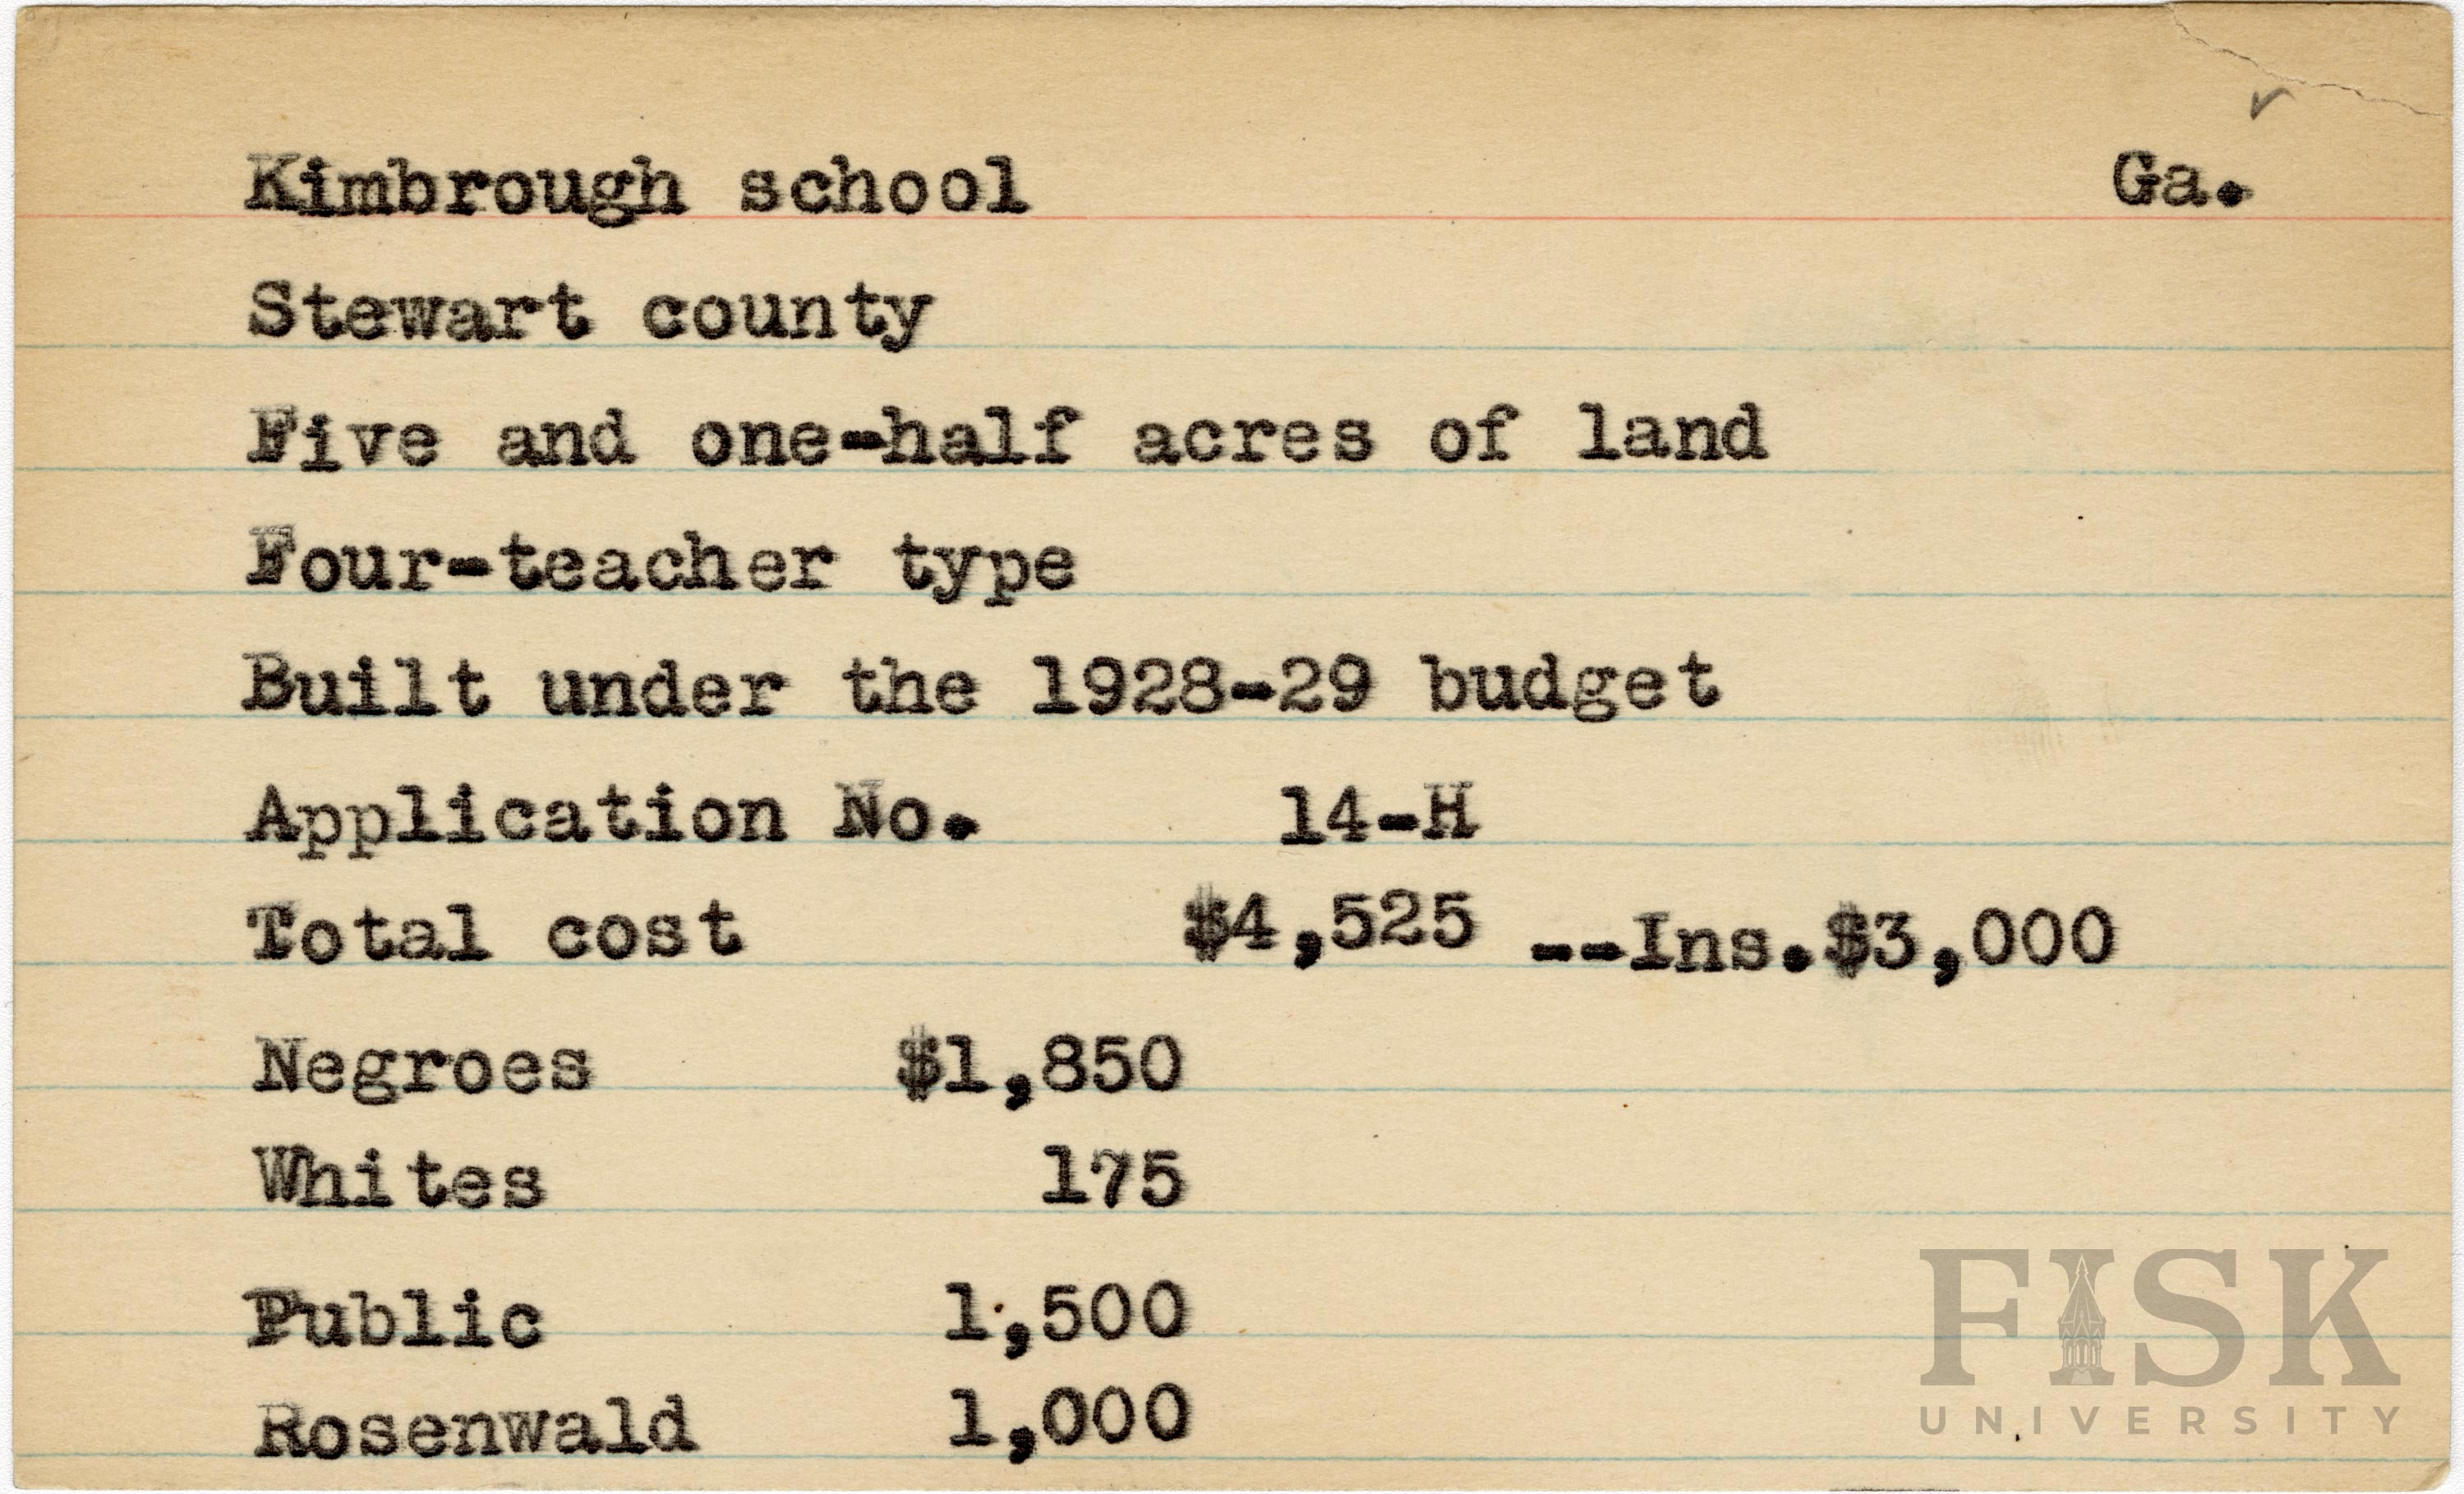 Kimbrough school Ga.
Stewart county
Five and one-half acres of land
Four-teacher type
Built under the 1928-29 budget
Application No. 14-H
Total cost $4,525 --Ins.$3,000
Negroes $1,850
Whites 175
Public 1,500
Rosenwald 1,000
FISK
UNIVERSITY